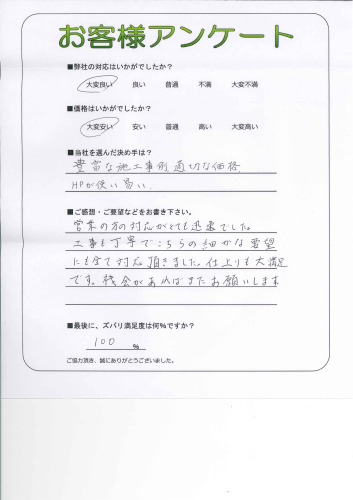 お客様アンケート
■弊社の対応はいかがでしたか？
大変良い 良い 普通 不満 大変不満
■価格はいかがでしたか？
大変安い 安い 普通 高い 大変高い
■当社を選んだ決め手は？
豊富な施工事例 適切な価格
HPが使い易い、
■ご感想・ご要望などをお書き下さい。
営業の方の対応がとても迅速でした。
工事も丁寧でこちらの細かな要望
にも全て対応頂きました。仕上りも大満足
です。機会があればまたお願いします
■最後に、ズバリ満足度は何%ですか？
100 %
ご協力頂き、誠にありがとうございました。